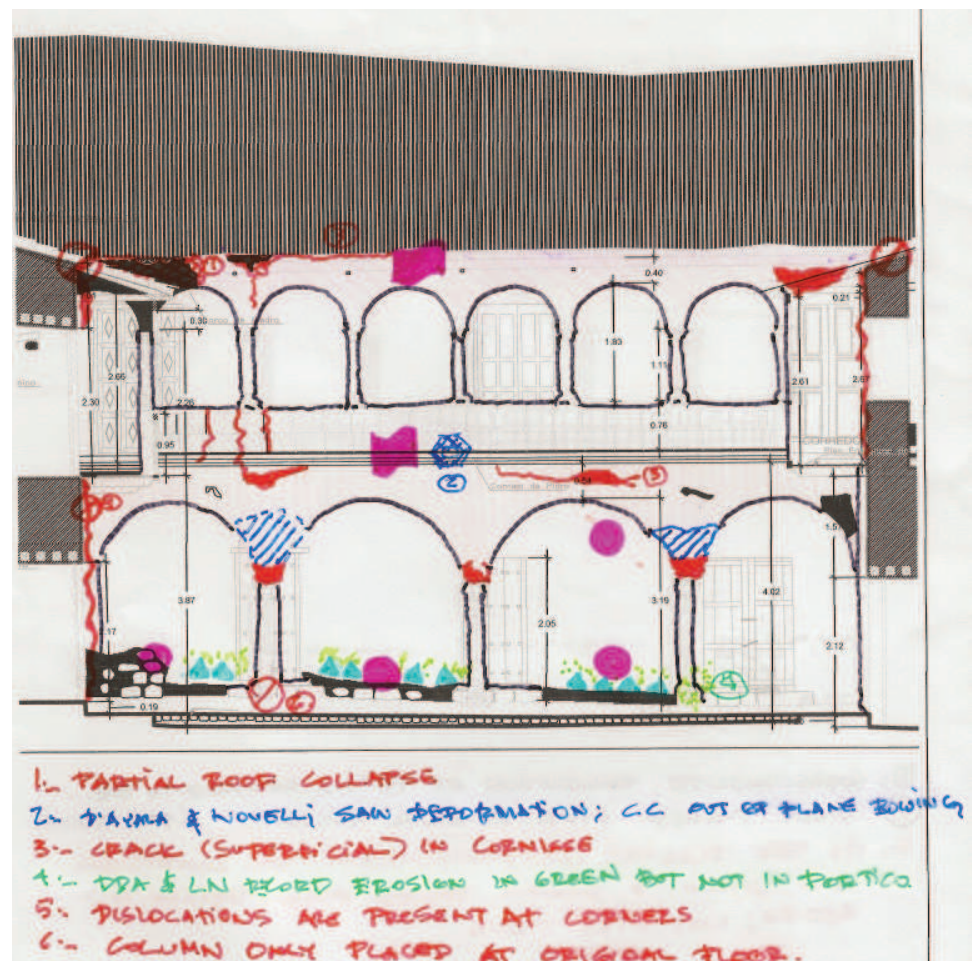 3
1
0.40
0.21
0.30
1.93
1.11
2.66
2.30
2.26
2.61
2.67
0.76
0.95
CORREDO
2
3
5
1.5
3.87
3.19
4.02
2.05
2.17
2.12
0.19
6
1:- PARTIAL ROOF COLLAPSE
2:- D'AYALA & NOVELLI SAW DEFORMATION; C.C OUT OF PLANE BOWING
3:- CRACK (SUPERFICIAL) IN CORNISSE
4:- DDA & LN RECORD EROSION IN GREEN BUT NOT IN PORTICO
5:- DISLOCATIONS ARE PRESENT AT CORNERS
6:- COLUMN ONLY PLACED AT ORIGINAL FLOOR.